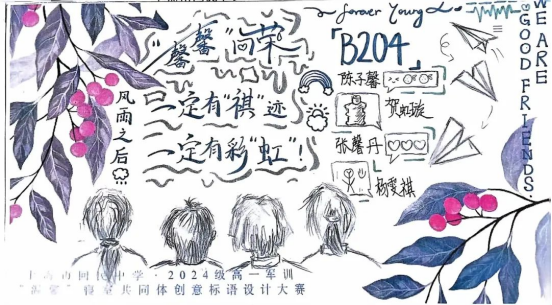 ~ forever Young ~
WE ARE
GOOD FRIENDS.
"馨馨"向荣
「B204」
风雨之后
一定有"祺"迹
一定有彩"虹"！
陈子馨
贺虹璇
张馨丹
杨雯祺
中学·2024级高一军训
寝室共同体创意标语设计大赛